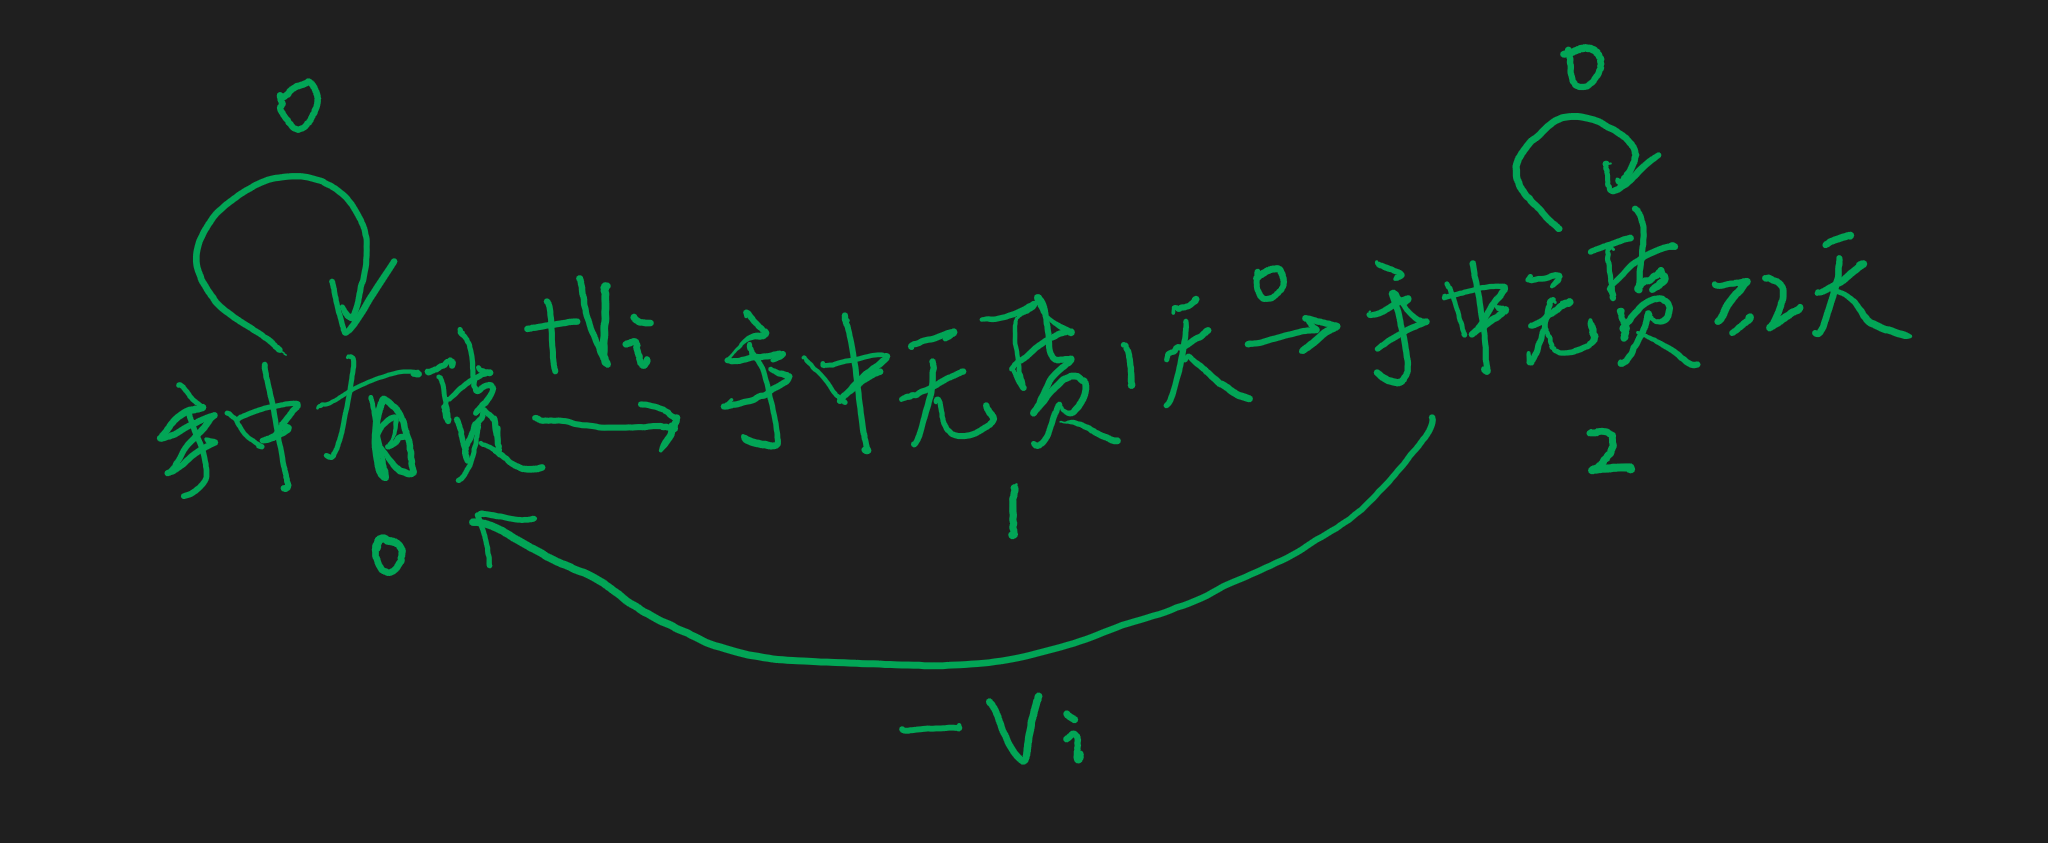 0
0
手中有货 +Vi → 手中无货1天 0 → 手中无货≥2天
0
1
2
-Vi